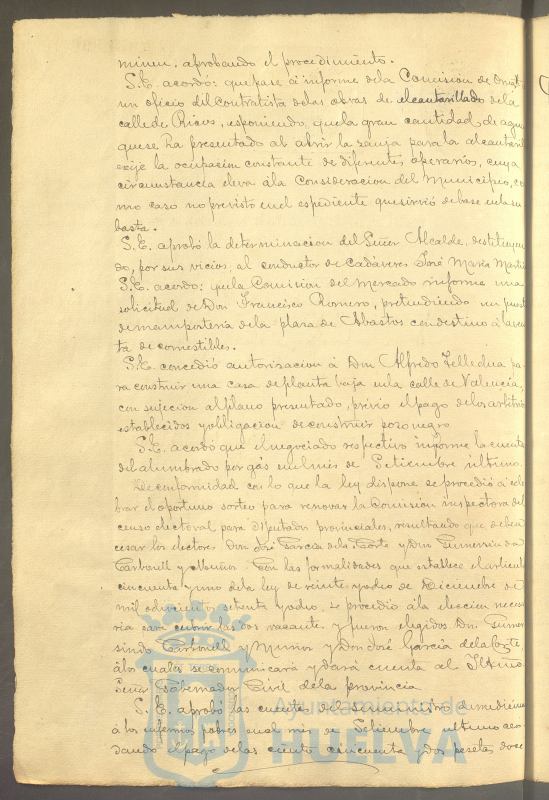 minen. aprobando el procedimiento.
S.E. acordó: que pase á informe dela Comision de Ornato
un oficio del contratista delas obras de el cantarillado dela
calle de Ricos, esponiendo, que la gran cantidad de agua
que se ha presentado al abrir la zanja para la alcantarilla
exije la ocupacion constante de diferentes operarios, cuya
circunstancia eleva ála Consideracion del Municipio, co
mo caso no previsto en el espediente que sirvió de base en la su
basta.
S.E. aprobó la determinacion del Señor Alcalde, destituyen
do, por sus vicios, al conductor de Cadáveres José María Martin
S.E. acordo: que la Comision del Mercado informe una
solicitud de Don Francisco Romero, pretendiendo un puesto
de mampostería dela plaza de Abastos con destino á la ven
ta de comestibles.
S.E. concedió autorizacion á Don Alfredo Telledua pa
ra construir una casa de planta baja en la calle de Valencia,
con sujecion al plano presentado, prévio el pago delos arbitrios
establecidos y obligacion de construir pozo negro
S.E. acordó que el negociado respectivo informe la cuenta
del alumbrado por gás en el mes de Setiembre último.
De conformidad con lo que la ley dispone se procedió á cele
brar el oportuno sorteo para renovar la Comision inspectora del
censo electoral para Diputados provinciales, resultando que deben
cesar los electores Don José García dela Corte y Don Gumersindo
Carbonell y Muñoz. Con las formalidades que establece el artículo
cincuenta y uno dela ley de veinte y ocho de Diciembre de
mil ochocientos setenta y ocho, se procedió ála eleccion necesa
ria para cubrir las dos vacante, y fueron elegidos Don Gumer
sindo Carbonell y Munnoz y Don José García dela Corte,
álos cuales se comunicará y dará cuenta al Iltmo
Señor Gobernador Civil dela provincia
S.E. aprobó las cuentas del suministro de medicinas
á los enfermos pobres en el mes de Setiembre último acor
dando el pago delas ciento cincuenta y dos pesetas doce
Ayuntamiento de
HUELVA